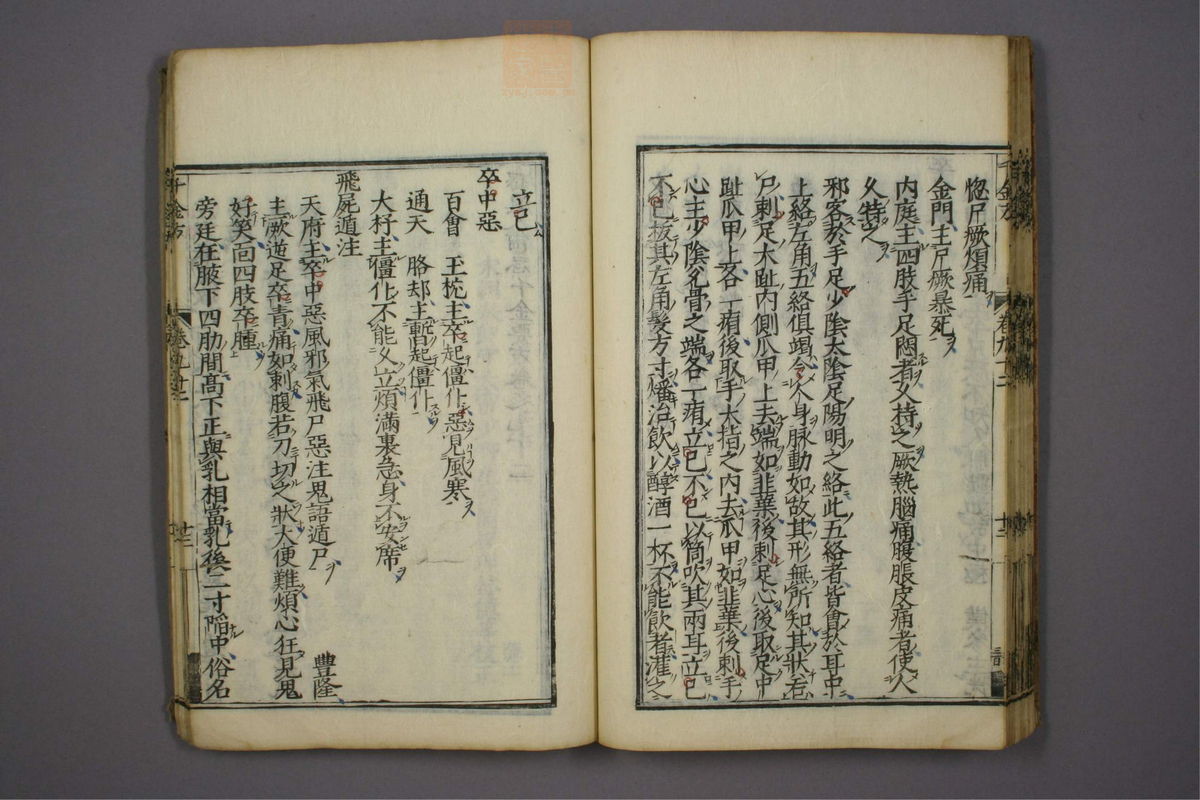 惚尸厥煩痛
金門主尸厥暴死
内庭主四肢手足悶者久持之厥熱腦痛腹脹皮痛者使人
久持之
邪客於手足少陰太陰足陽明之絡此五絡者皆會於耳中
上絡左角五絡俱竭令人身脉動如故其形無所知其狀若
尸刺足大趾内側爪甲上去端如韭葉後刺足心後取足中
趾爪甲上各一痏後取手大指之内去爪甲如韭葉後刺手
心主少陰兌骨之端各一痏立已不已以筒吹其兩耳立已
不已拔其左角髮方寸燔治飲以醇酒一杯不能飲者灌之
立已
卒中惡
百會 玉枕主卒起僵仆惡見風寒
通天 胳却主暫起僵仆
大杼主僵仆不能久立煩滿裏急身不安席
飛屍遁注
天府主卒中惡風邪氣飛尸惡注鬼語遁尸 豐隆
主厥逆足卒青痛如刺腹若刀切之狀大便難煩心狂見鬼
好笑面四肢卒腫
旁廷在腋下四肋間高下正與乳相當乳後二寸陷中俗名
千金方
卷九十二
十二